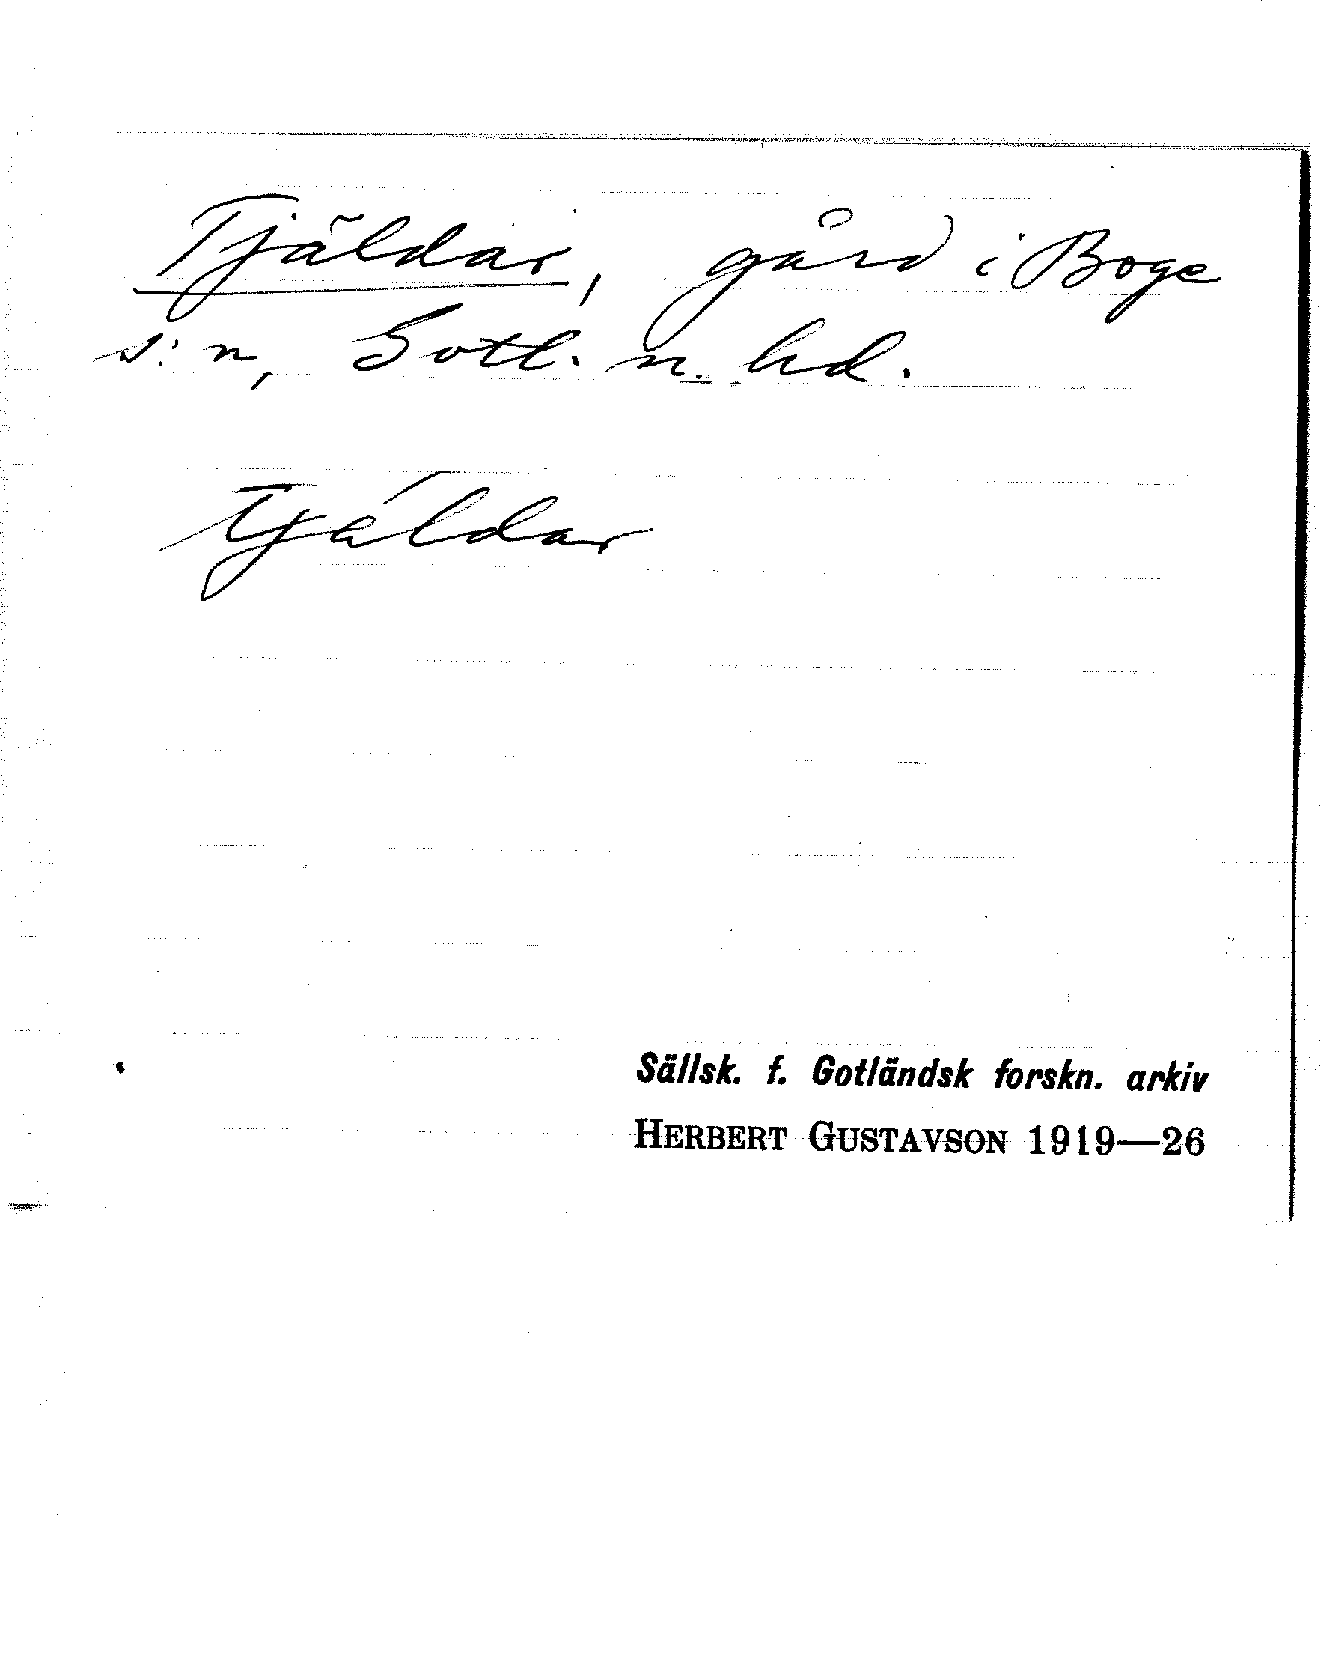 Tjäldar, gård i Boge
s:n, Gotl. n. hd.
tjäldar
Sällsk. f. Gotländsk forskn. arkiv
HERBERT GUSTAVSON 1919—26